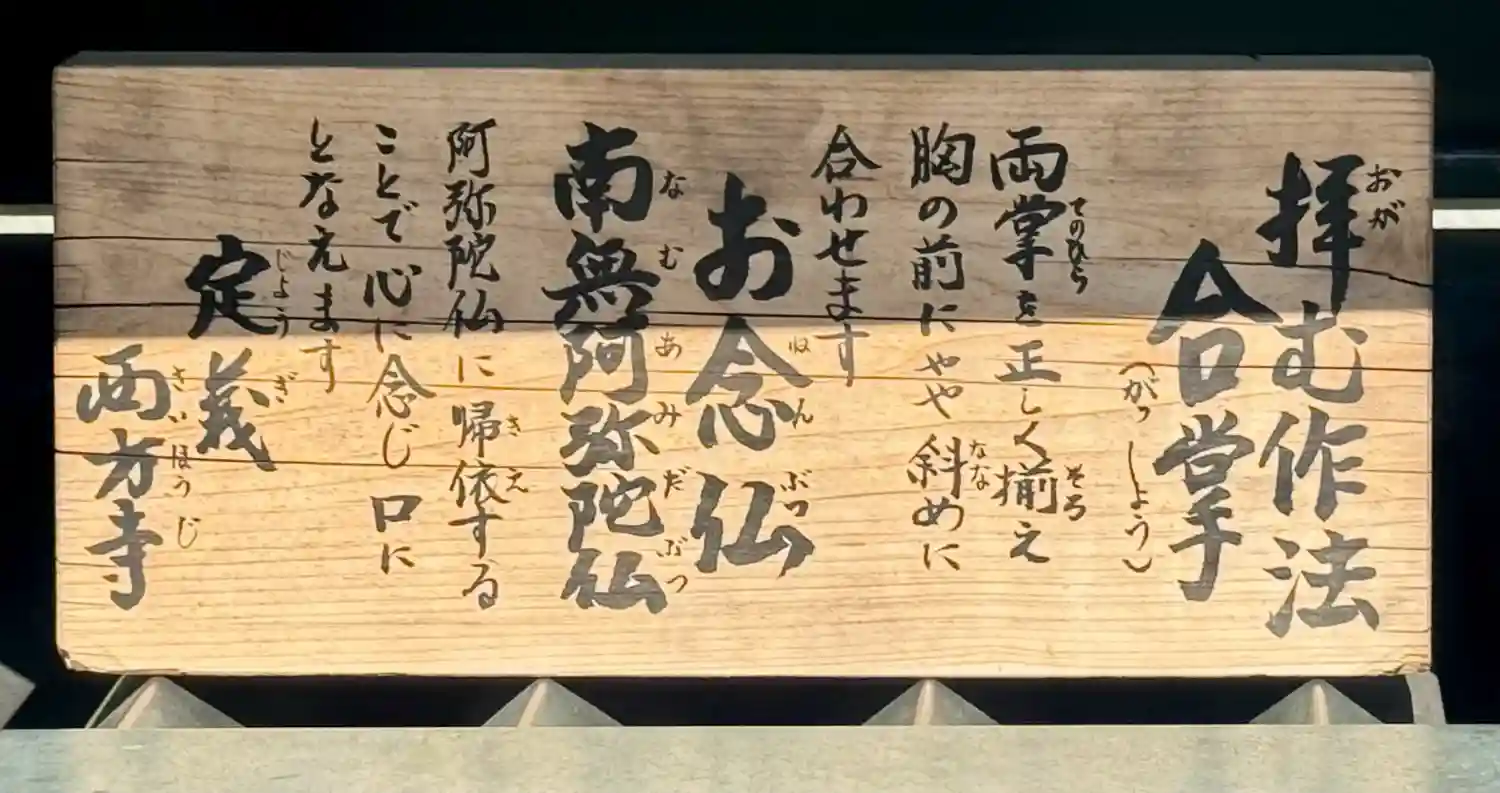 拝む作法
おが
合掌
(がっしょう)
両掌を正しく揃え
てのひら
そろ
胸の前にやや斜めに
なな
合わせます
お念仏
ねんぶつ
南無阿弥陀仏
なむあみだぶつ
阿弥陀仏に帰依する
きえ
ことで心に念じ口に
となえます
定義
じようぎ
西方寺
さいほうじ